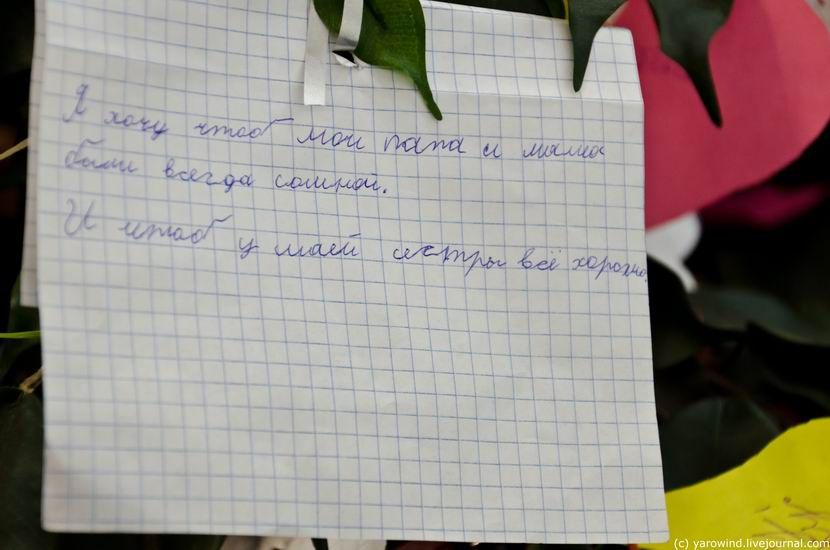 Я хочу чтоб мои папа и мама
были всегда сомной.
И чтоб у маей сестры всё хорошо.
(c) yarowind.livejournal.com